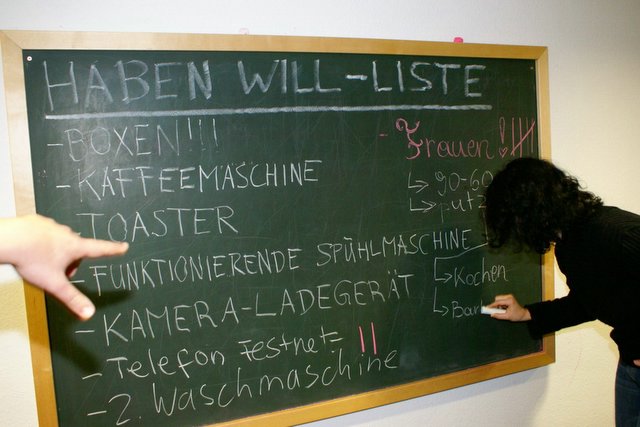 HABEN WILL-LISTE
- BOXEN!!!
- KAFFEEMASCHINE
- TOASTER
- FUNKTIONIERENDE SPÜHLMASCHINE
- KAMERA-LADEGERÄT
- Telefon Festnetz
- 2. Waschmaschine
- Frauen!
90-60
putz
Kochen